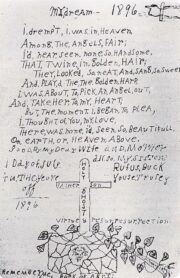 MY dream — 1896.
i, dremPT, i, was in Heaven,
Among, The, Angels, Fair;
i'd, near, seen none, so Handsome,
That, Twine, in Golden, Hair;
They, Looked, So, neat, And, Sang, So, Sweet
And, Play'd, The, The, Golden, Harp,
I was, About, To, Pick, An, Angel, out,
And, Take, Her, To, My, Heart,
But, The, moment, I, Began, To, Plea,
I, Thought, of, You, My, Love,
There, was, none, i'd, seen, so, Beautifull,
On, earth, or, Heaven, Above,
good, By, My, Dear, Wife, and, Mother
also My Sisters
RUFUS, BUCK
Yours, Truly,
I Day of July
1896
HOLY GHOST
Father Son
virtue & resurrection
Remember Me